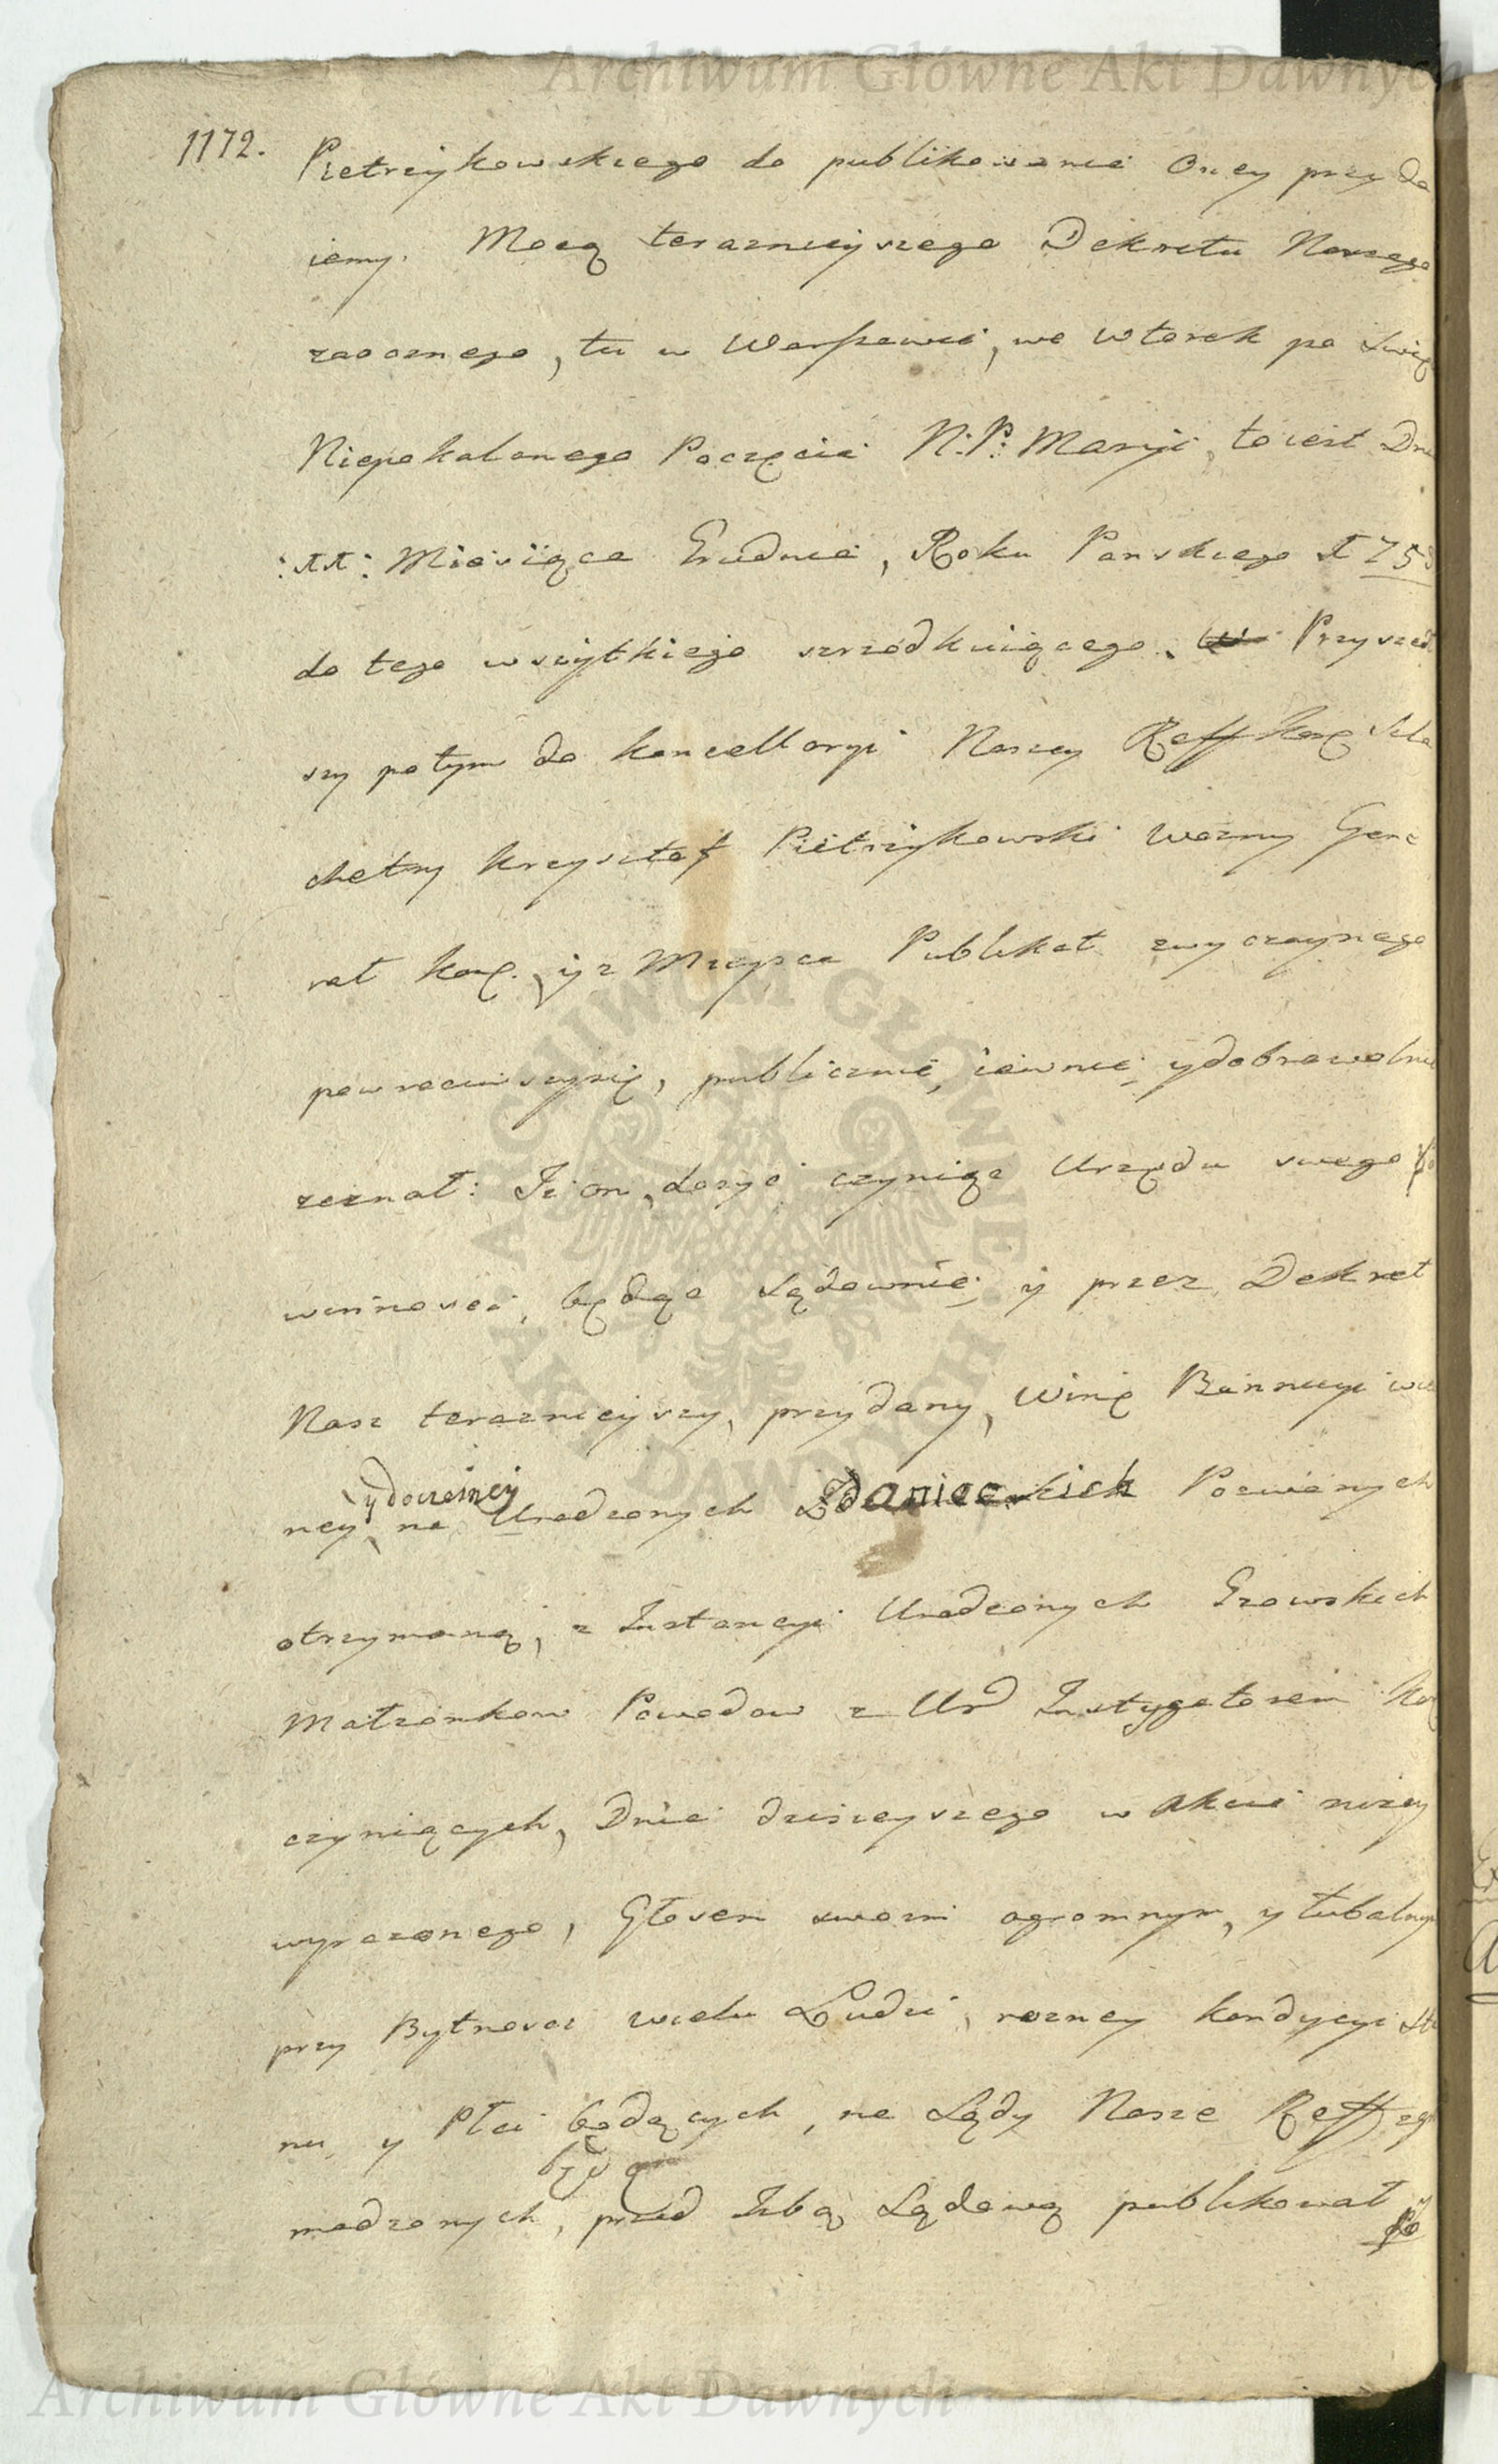 Archiwum Główne Akt Dawnych
1172. Pietrzykowskiego do publikowania Oney przyda
iemy. Mocą teraznieyszego Dekretu Naszego
zaocznego, tu w Warszawie, we wtorek po Swię
Niepokalanego Poczęcia N: P: Maryi, to iest Dnia
:11: Miesiąca Grudnia, Roku Panskiego 175
do tego wszytkiego szrzodkuiącego. Przyszed
szy potym do Kancellaryi Naszey Reff Kor Szla
chetny Krzysztof Pietrzykowski Wozny Gene
rał Kor. y z Mieysca Publikat zwyczaynego
powrociwszysię, publicznie, iawnie, y dobrowolnie
zeznał: Iż on, dosyć czyniąc Urzędu swego Po
winnosci, będąc sądownie, y przez Dekret
Nasz teraznieyszy, przydany, Winę Bannicyi wie
czney y doczesney na Urodzonych Zdanieckich Pozwanych
otrzymaną, z Instancyi Urodzonych Growskich
Małzonkow Powodow z Ur Instygatorem Kor
czyniących, Dnia dzisieyszego w Akcie niżey
wyrazonego, Głosem swoim ogromnym, y tubalnym
przy Bytnosci wielu Ludzi, rozney kondycyi Sta
nu, y Płci będących, na Sądy Nasze Reff zgro
będą
madzonych, przed Izbą Sądową publikował
Po
ARCHIWUM GŁÓWNE AKT DAWNYCH
Archiwum Główne Akt Dawnych